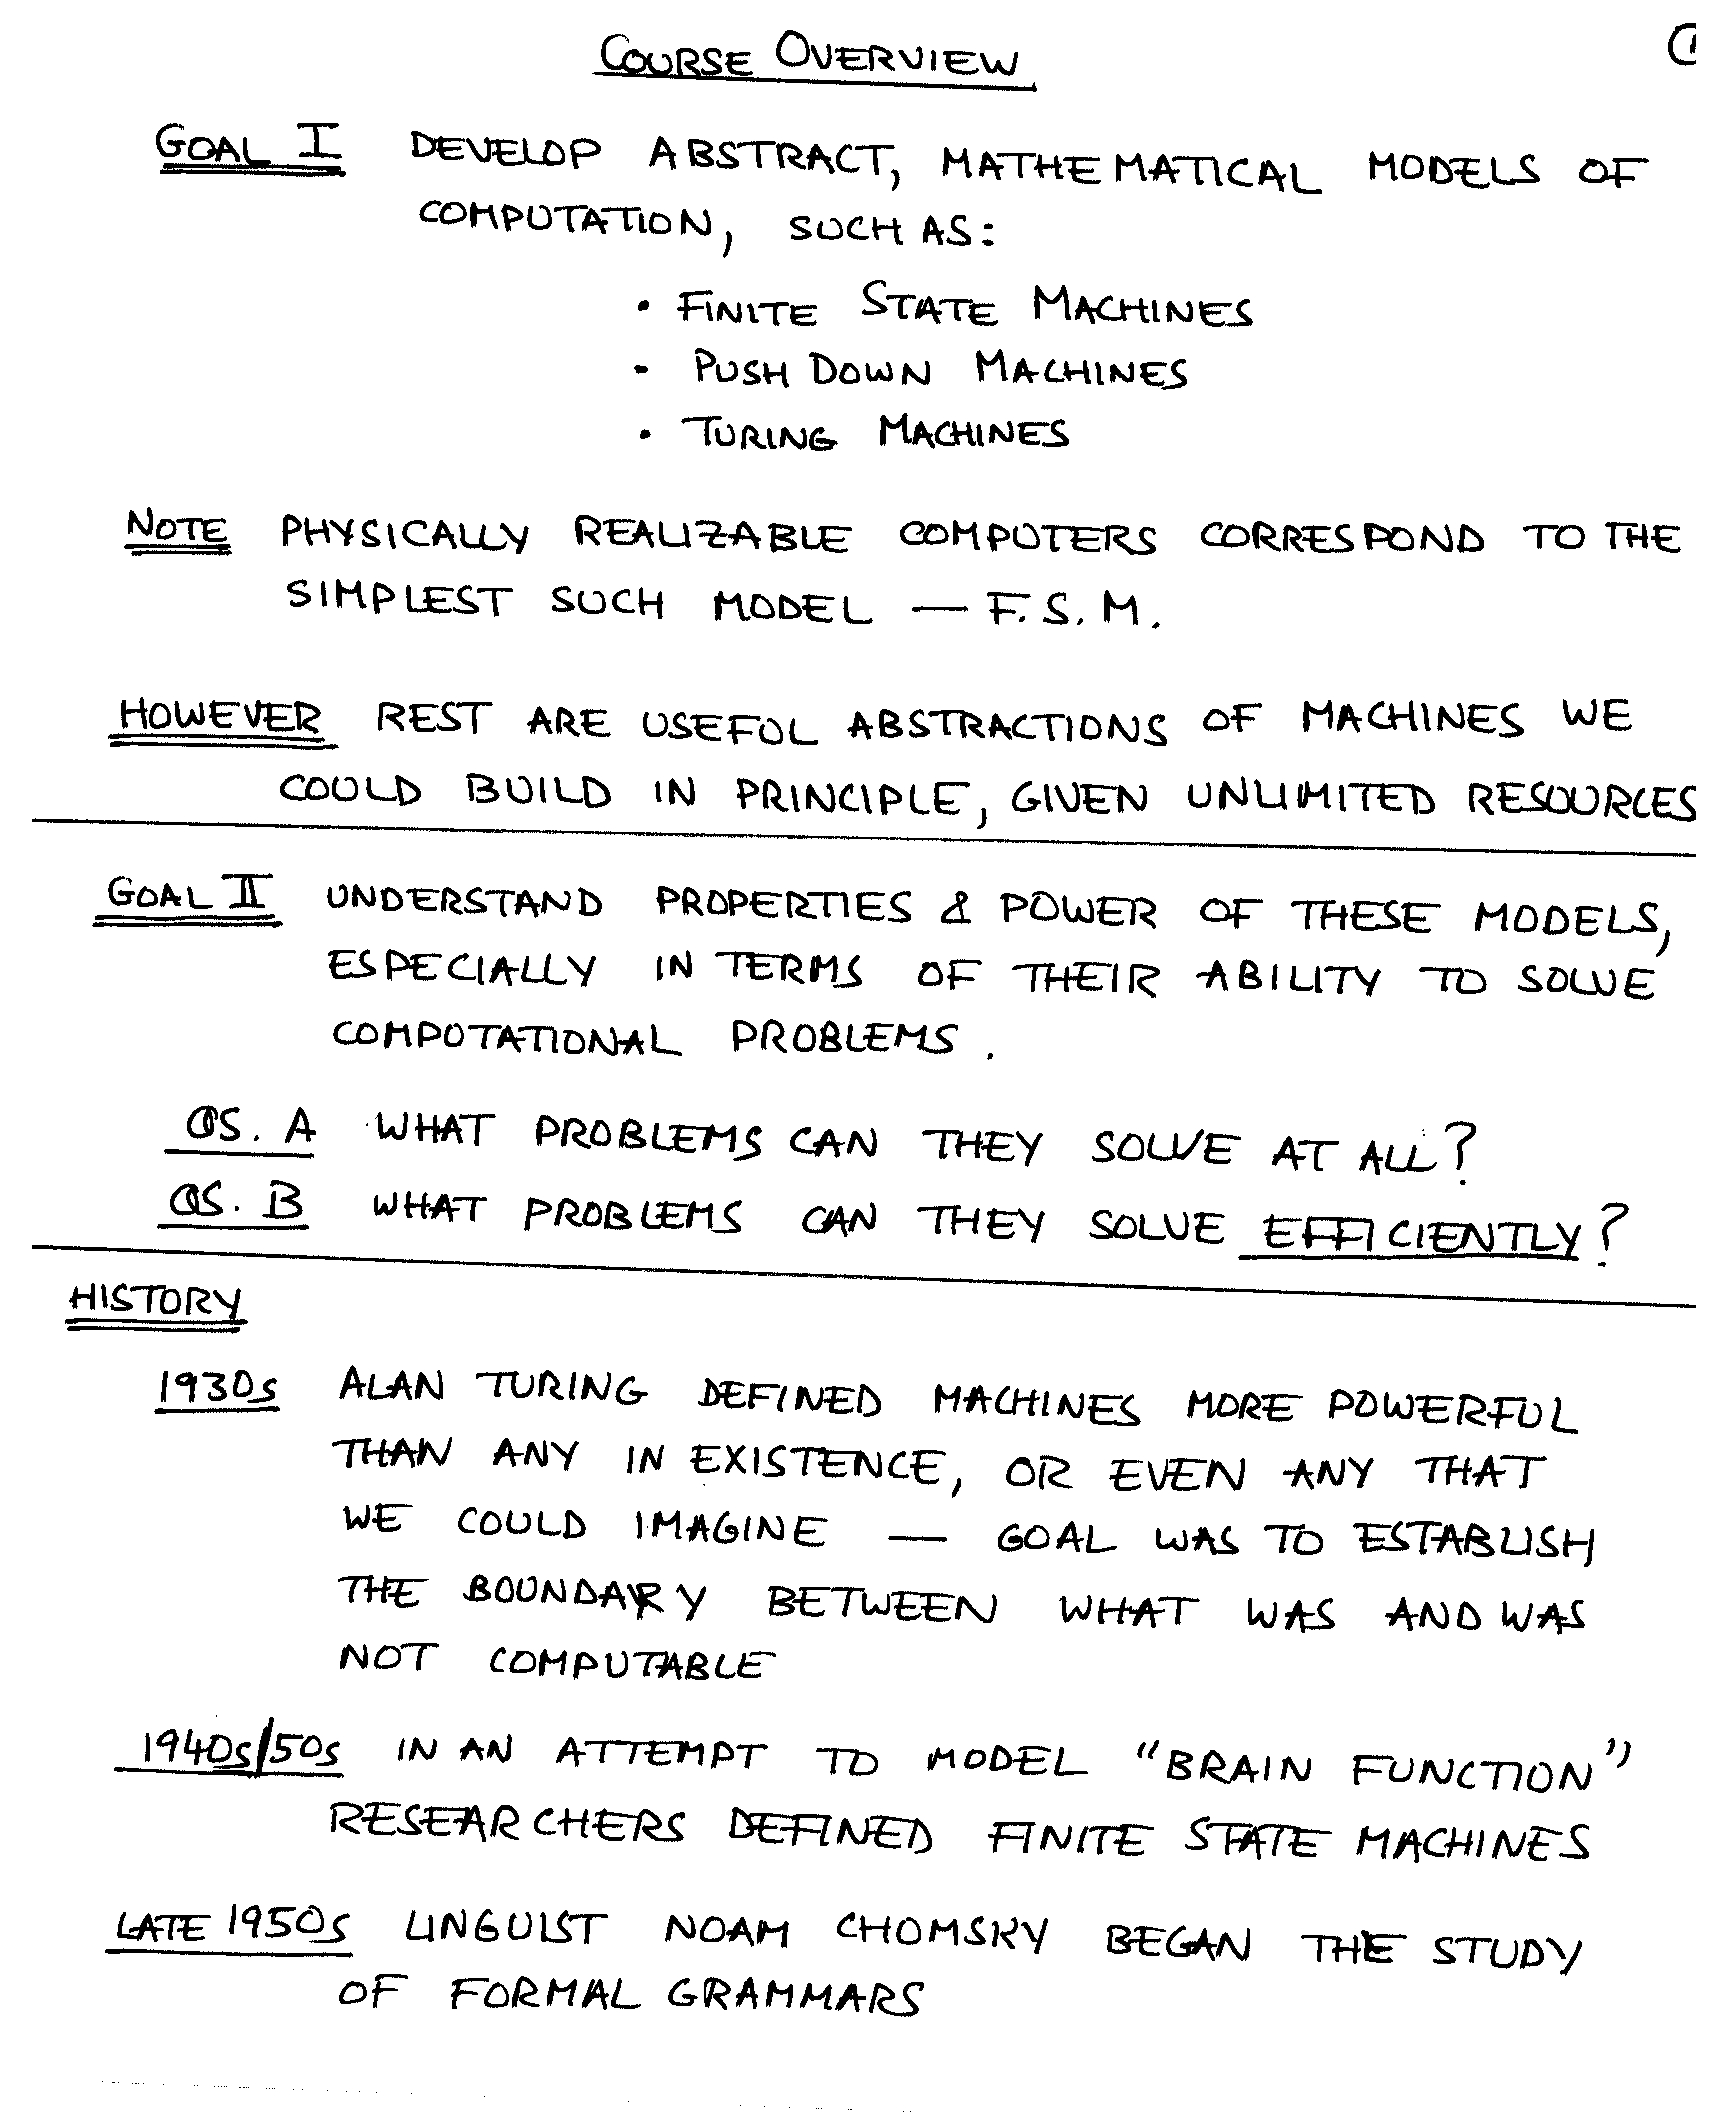 COURSE OVERVIEW
GOAL I DEVELOP ABSTRACT, MATHEMATICAL MODELS OF
COMPUTATION, SUCH AS:
• FINITE STATE MACHINES
• PUSH DOWN MACHINES
• TURING MACHINES
NOTE PHYSICALLY REALIZABLE COMPUTERS CORRESPOND TO THE
SIMPLEST SUCH MODEL — F.S.M.
HOWEVER REST ARE USEFUL ABSTRACTIONS OF MACHINES WE
COULD BUILD IN PRINCIPLE, GIVEN UNLIMITED RESOURCES
GOAL II UNDERSTAND PROPERTIES & POWER OF THESE MODELS,
ESPECIALLY IN TERMS OF THEIR ABILITY TO SOLVE
COMPUTATIONAL PROBLEMS.
QS. A WHAT PROBLEMS CAN THEY SOLVE AT ALL?
QS. B WHAT PROBLEMS CAN THEY SOLVE EFFICIENTLY?
HISTORY
1930s ALAN TURING DEFINED MACHINES MORE POWERFUL
THAN ANY IN EXISTENCE, OR EVEN ANY THAT
WE COULD IMAGINE — GOAL WAS TO ESTABLISH
THE BOUNDARY BETWEEN WHAT WAS AND WAS
NOT COMPUTABLE
1940s/50s IN AN ATTEMPT TO MODEL "BRAIN FUNCTION"
RESEARCHERS DEFINED FINITE STATE MACHINES
LATE 1950s LINGUIST NOAM CHOMSKY BEGAN THE STUDY
OF FORMAL GRAMMARS